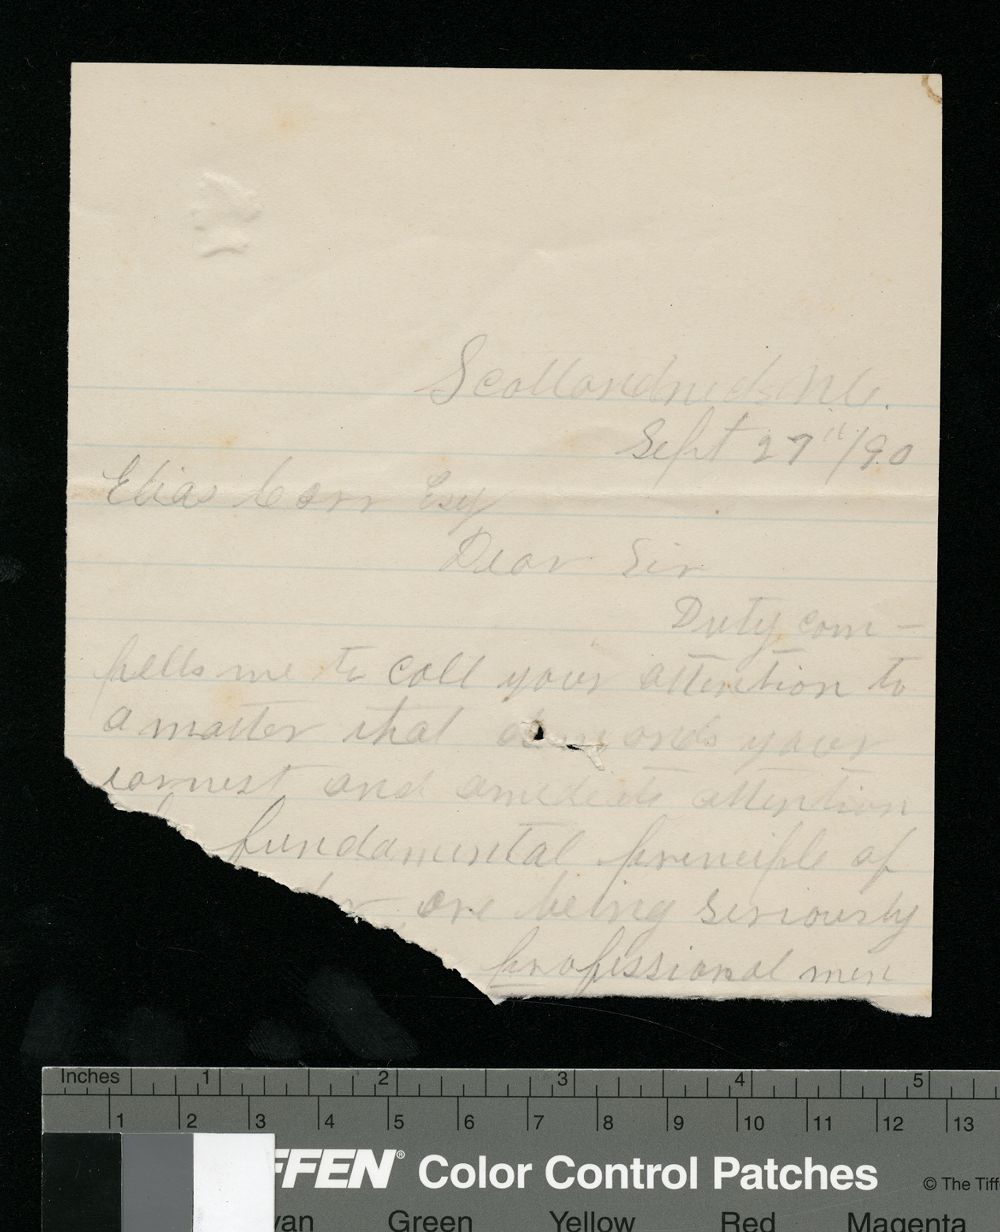 Scotlandneck N.C.
Sept 27th/90
Elias Carr Esq
Dear Sir
Duty com-
pells me to call your attention to
a matter that demands your
earnest and amediate attention
fundamental principle of
are being seriously
professional men
Inches 1 2 3 4 5
1 2 3 4 5 6 7 8 9 10 11 12 13
FFEN® Color Control Patches © The Tiff
yan Green Yellow Red Magenta